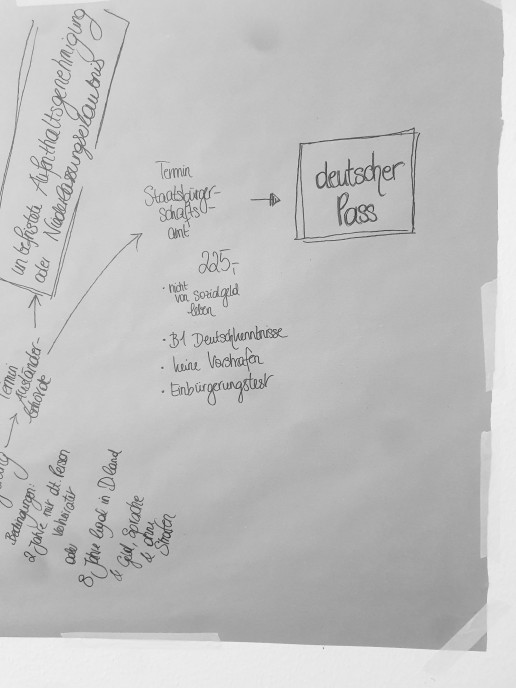 unbefristete Aufenthaltsgenehmigung
oder Niederlassungserlaubnis
Termin
Ausländer-
behörde
Bedingungen:
2 Jahre mit dt. Person
verheiratet
oder
8 Jahre legal in Dland
& Geld, Sprache
& ohne
Strafen
Termin
Staatsbürger-
schafts-
amt
225,-
• nicht
von Sozialgeld
leben
• B1 Deutschkenntnisse
• keine Vorstrafen
• Einbürgerungstest
deutscher
Pass